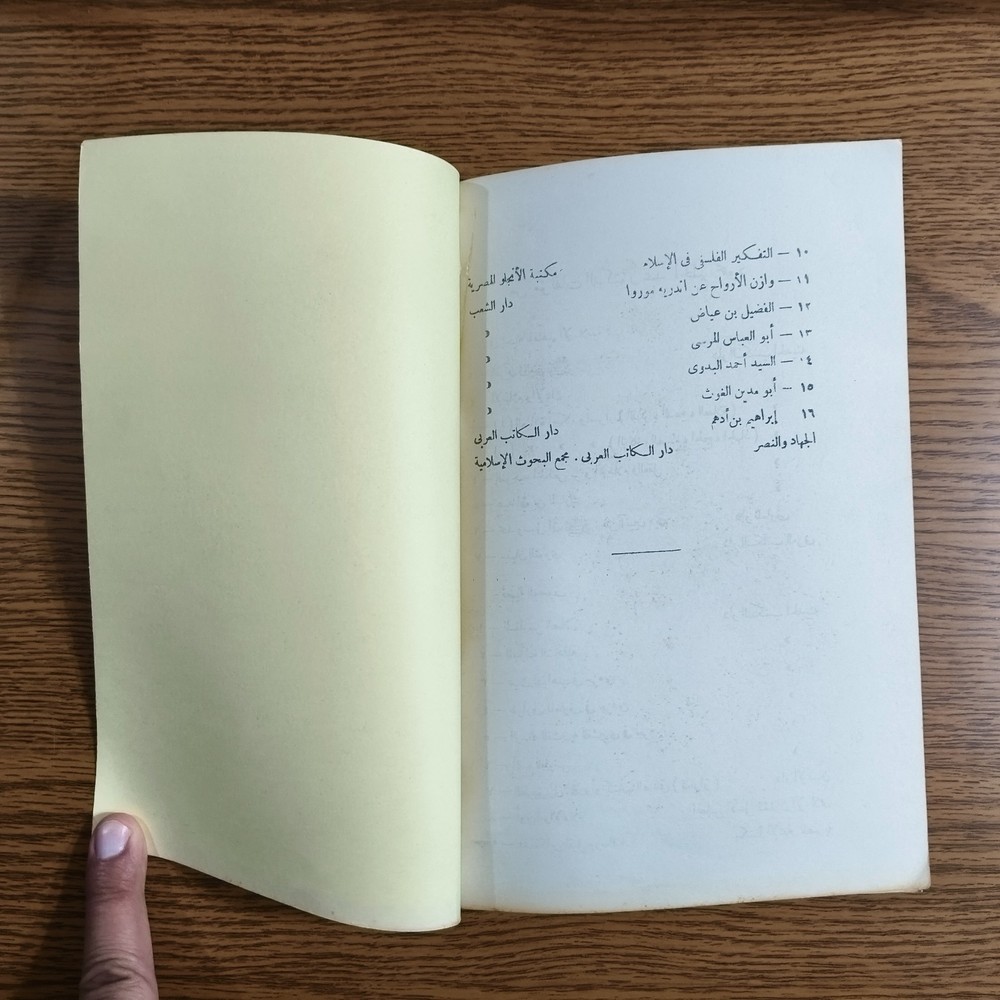 ١٠ — التفكير الفلسفى فى الإسلام مكتبة الأنجلو المصرية
١١ — وازن الأرواح عن اندريه موروا دار الشعب
١٢ — الفضيل بن عياض »
١٣ — أبو العباس المرسى »
٠٤ — السيد أحمد البدوى »
١٥ — أبو مدين الغوث »
١٦ إبراهيم بن أدهم دار الكاتب العربى
الجهاد والنصر دار الكاتب العربى . مجمع البحوث الإسلامية